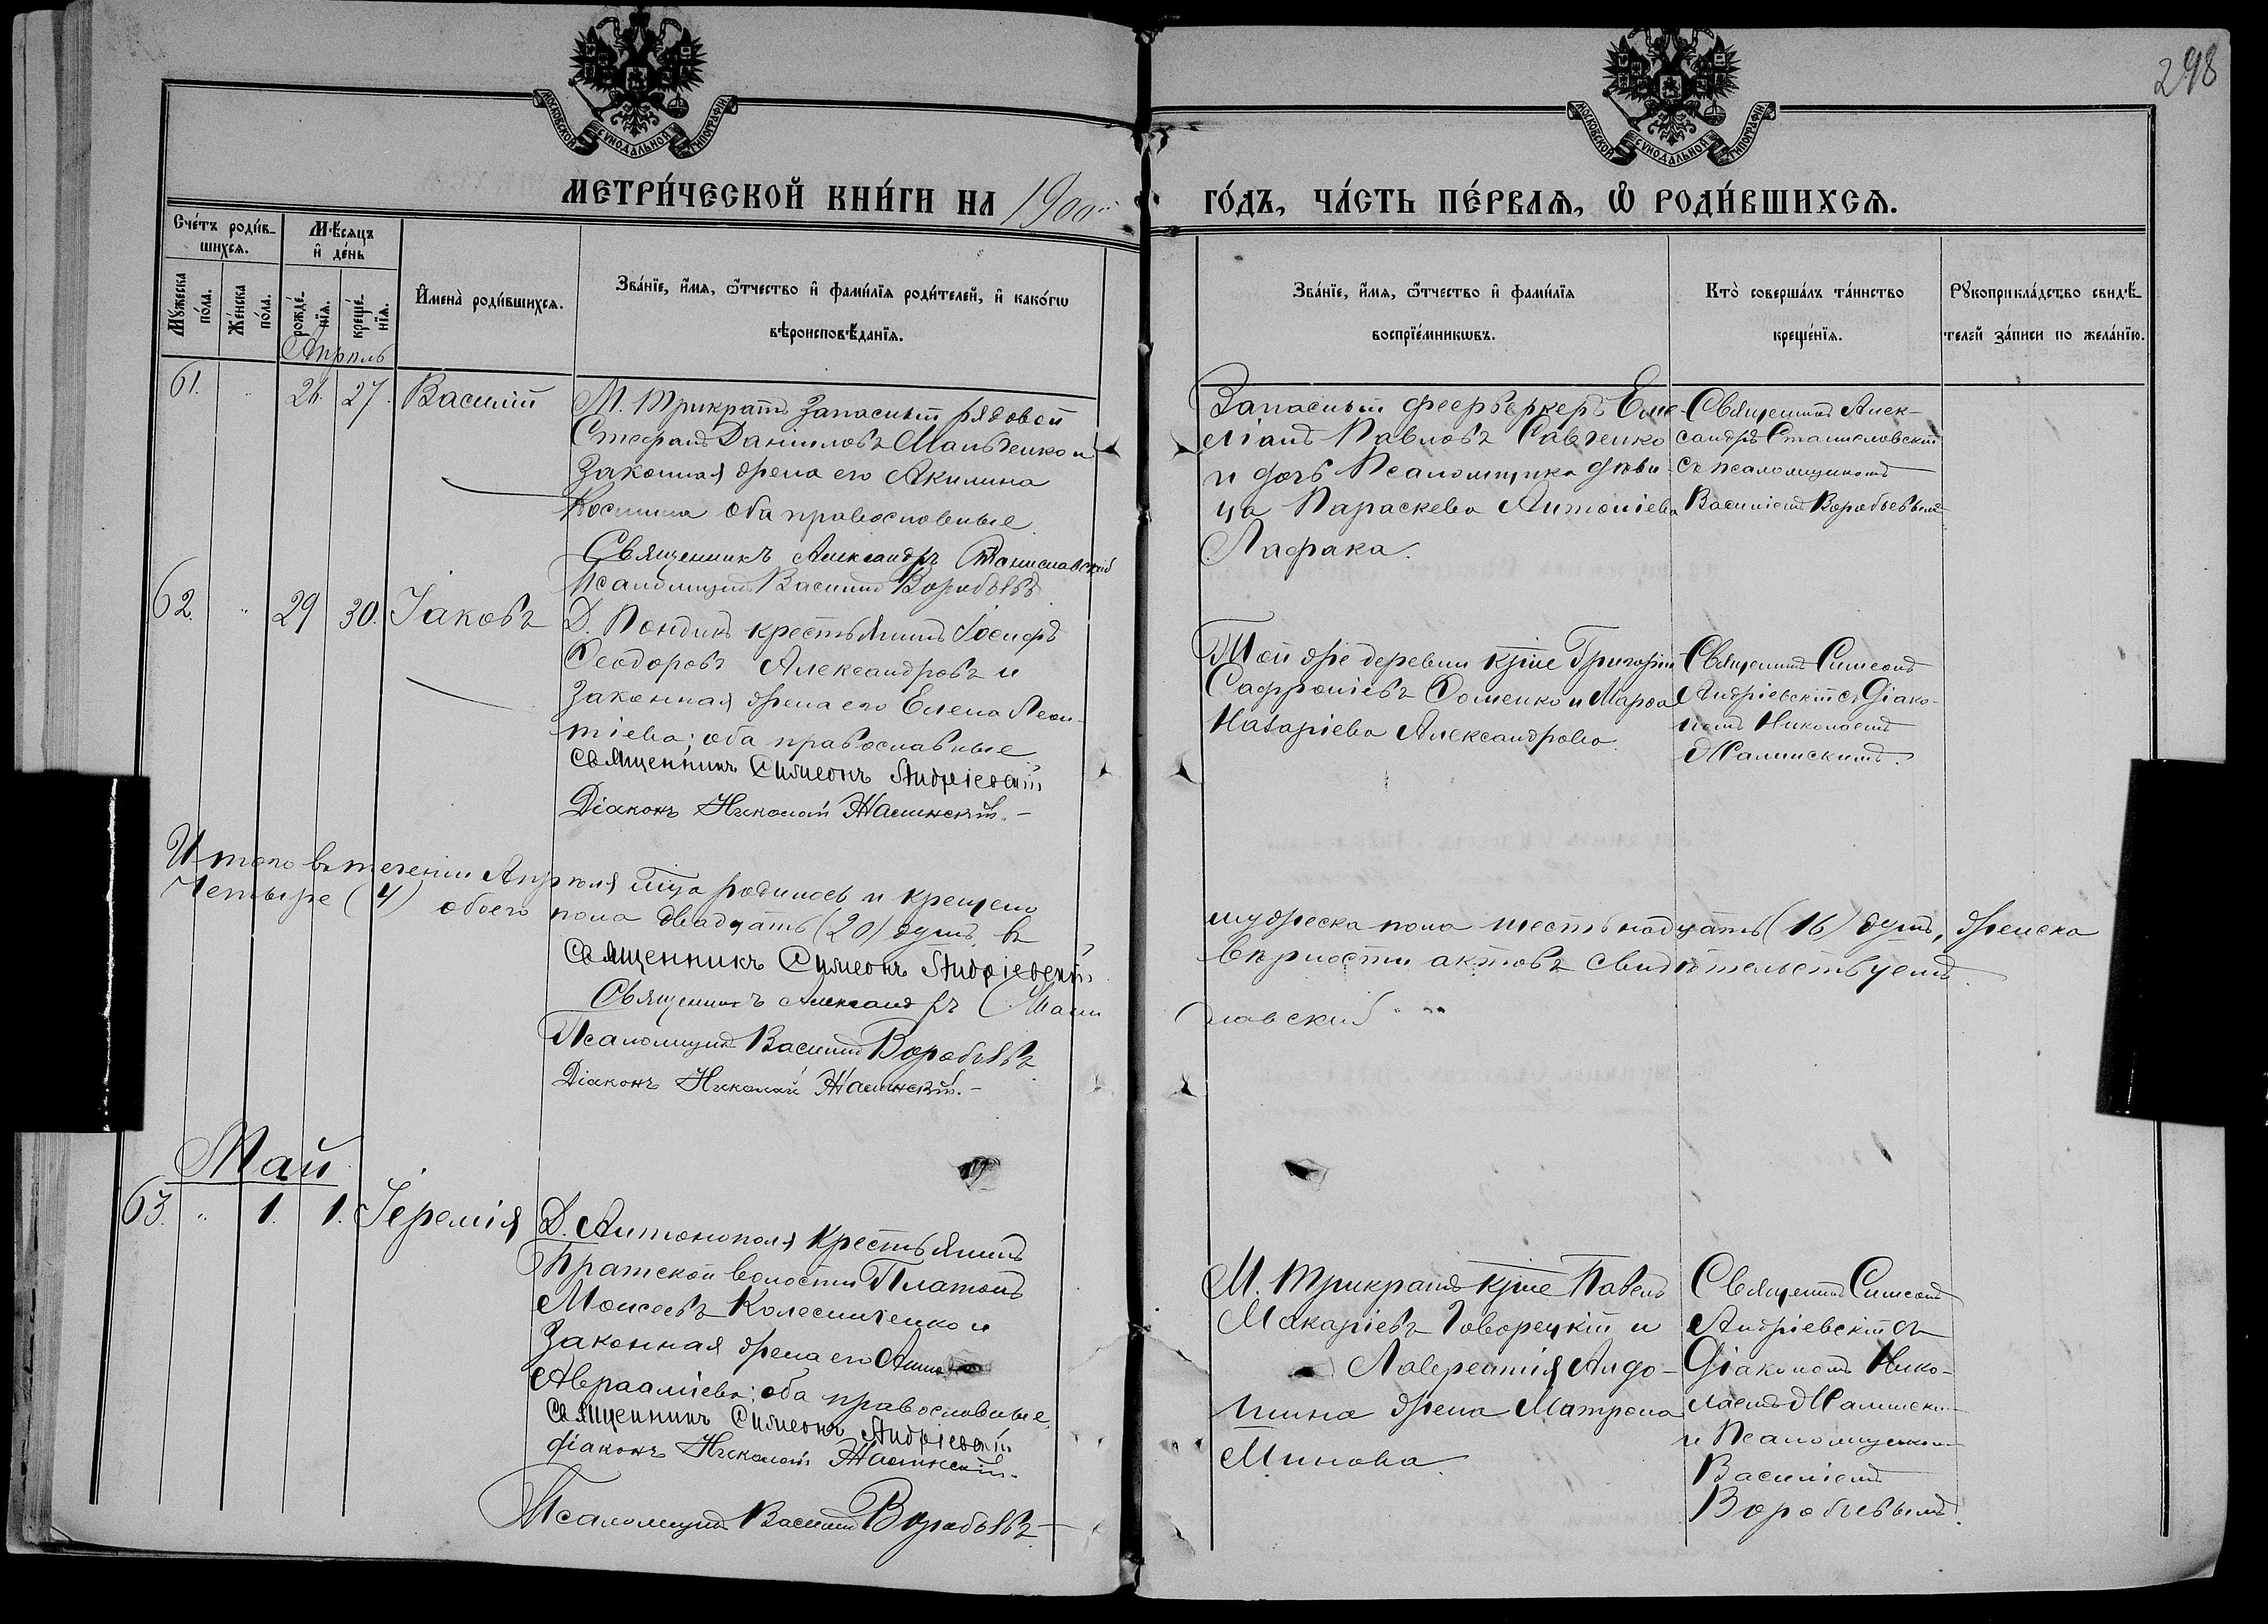 298
МОСКОВСКОЙ СУНОДАЛЬНОЙ ТИПОГРАФІИ
МОСКОВСКОЙ СУНОДАЛЬНОЙ ТИПОГРАФІИ
МЕТРИ́ЧЕСКОЙ КНИ́ГИ НА 1900й
ГО́ДЪ, ЧА́СТЬ ПЕ́РВАѦ, Ѽ РОДИ́ВШИХСѦ.
Сче́тъ роди́в-
шихсѧ.
Мꙋжеска по́ла.
Же́нска по́ла.
Мѣ́сѧцъ
и҆ де́нь
рожде́-нїѧ.
креще́-нїѧ.
И҆мена̀ роди́вшихсѧ.
Зва́нїе, и҆́мѧ, ѻ҆́тчество и҆ фами́лїѧ роди́телей, и҆ како́гѡ
вѣроисповѣ́данїѧ.
Зва́нїе, и҆́мѧ, ѻ҆́тчество и҆ фами́лїѧ
воспрїе́мникѡвъ.
Кто̀ соверша́лъ та́инство
креще́нїѧ.
Рꙋкоприкла́дство свидѣ́-
телей за́писи по жела́нїю.
Апрѣль
61. " 26. 27. Василій
М. Трикратъ Запасный рядовой
Стефанъ Даніиловъ Мальченко и
Законная жена его Акилина
Космина оба православные
Священникъ Александръ Станиславскій
Псаломщикъ Василій Воробьевъ
Запасный феерверкеръ Еме-
ліанъ Павловъ Савченко
и дочь Псаломщика дѣви-
ца Параскева Антоніева
Лафака.
Священникъ Алек-
сандръ Станиславскій
съ псаломщикомъ
Василіемъ Воробьевымъ
62. " 29 30. Іаковъ
Д. Пондикъ крестьянинъ Іосифъ
Ѳеодоровъ Александровъ и
Законная жена его Елена Леон-
тіева; оба православные
Священникъ Симеонъ Андріевскій
Діаконъ Николай Жалинскій.-
Той же деревни кр-не Григорій
Сафроніевъ Ѳоменко и Марѳа
Назаріева Александрова.
Священникъ Симеонъ
Андріевскій съ Діако-
номъ Николаемъ
Жалинскимъ.
Итого въ теченіи Апрѣля м-ца родилось и крещено
мужеска пола шестьнадцать (16) душъ, женска
Четыре (4) обоего пола двадцать (20) душъ, въ
вѣрности актовъ свидѣтельствуемъ.
Священникъ Симеонъ Андріевскій
Священникъ Александръ Стани
славскій
Псаломщикъ Василій Воробьевъ
Діаконъ Николай Жалинскій.-
Май
63. " 1. 1. Іеремія
Д. Антонополя крестьянинъ
Братской волости Платонъ
Моисеевъ Колесниченко и
Законная жена его Анна
Авраамiева; оба православные.
Священникъ Симеонъ Андріевскій
Діаконъ Николай Жалинскій.-
Псаломщикъ Василій Воробьевъ.-
М. Трикратъ кр-не Павелъ
Макаріевъ Говорецкій и
Лаврентія Алдо-
шина жена Матрона
Минова.
Священникъ Симеонъ
Андріевскій съ
Діакономъ Нико-
лаемъ Жалински-
и Псаломщикомъ
Василіемъ
Воробьевымъ.